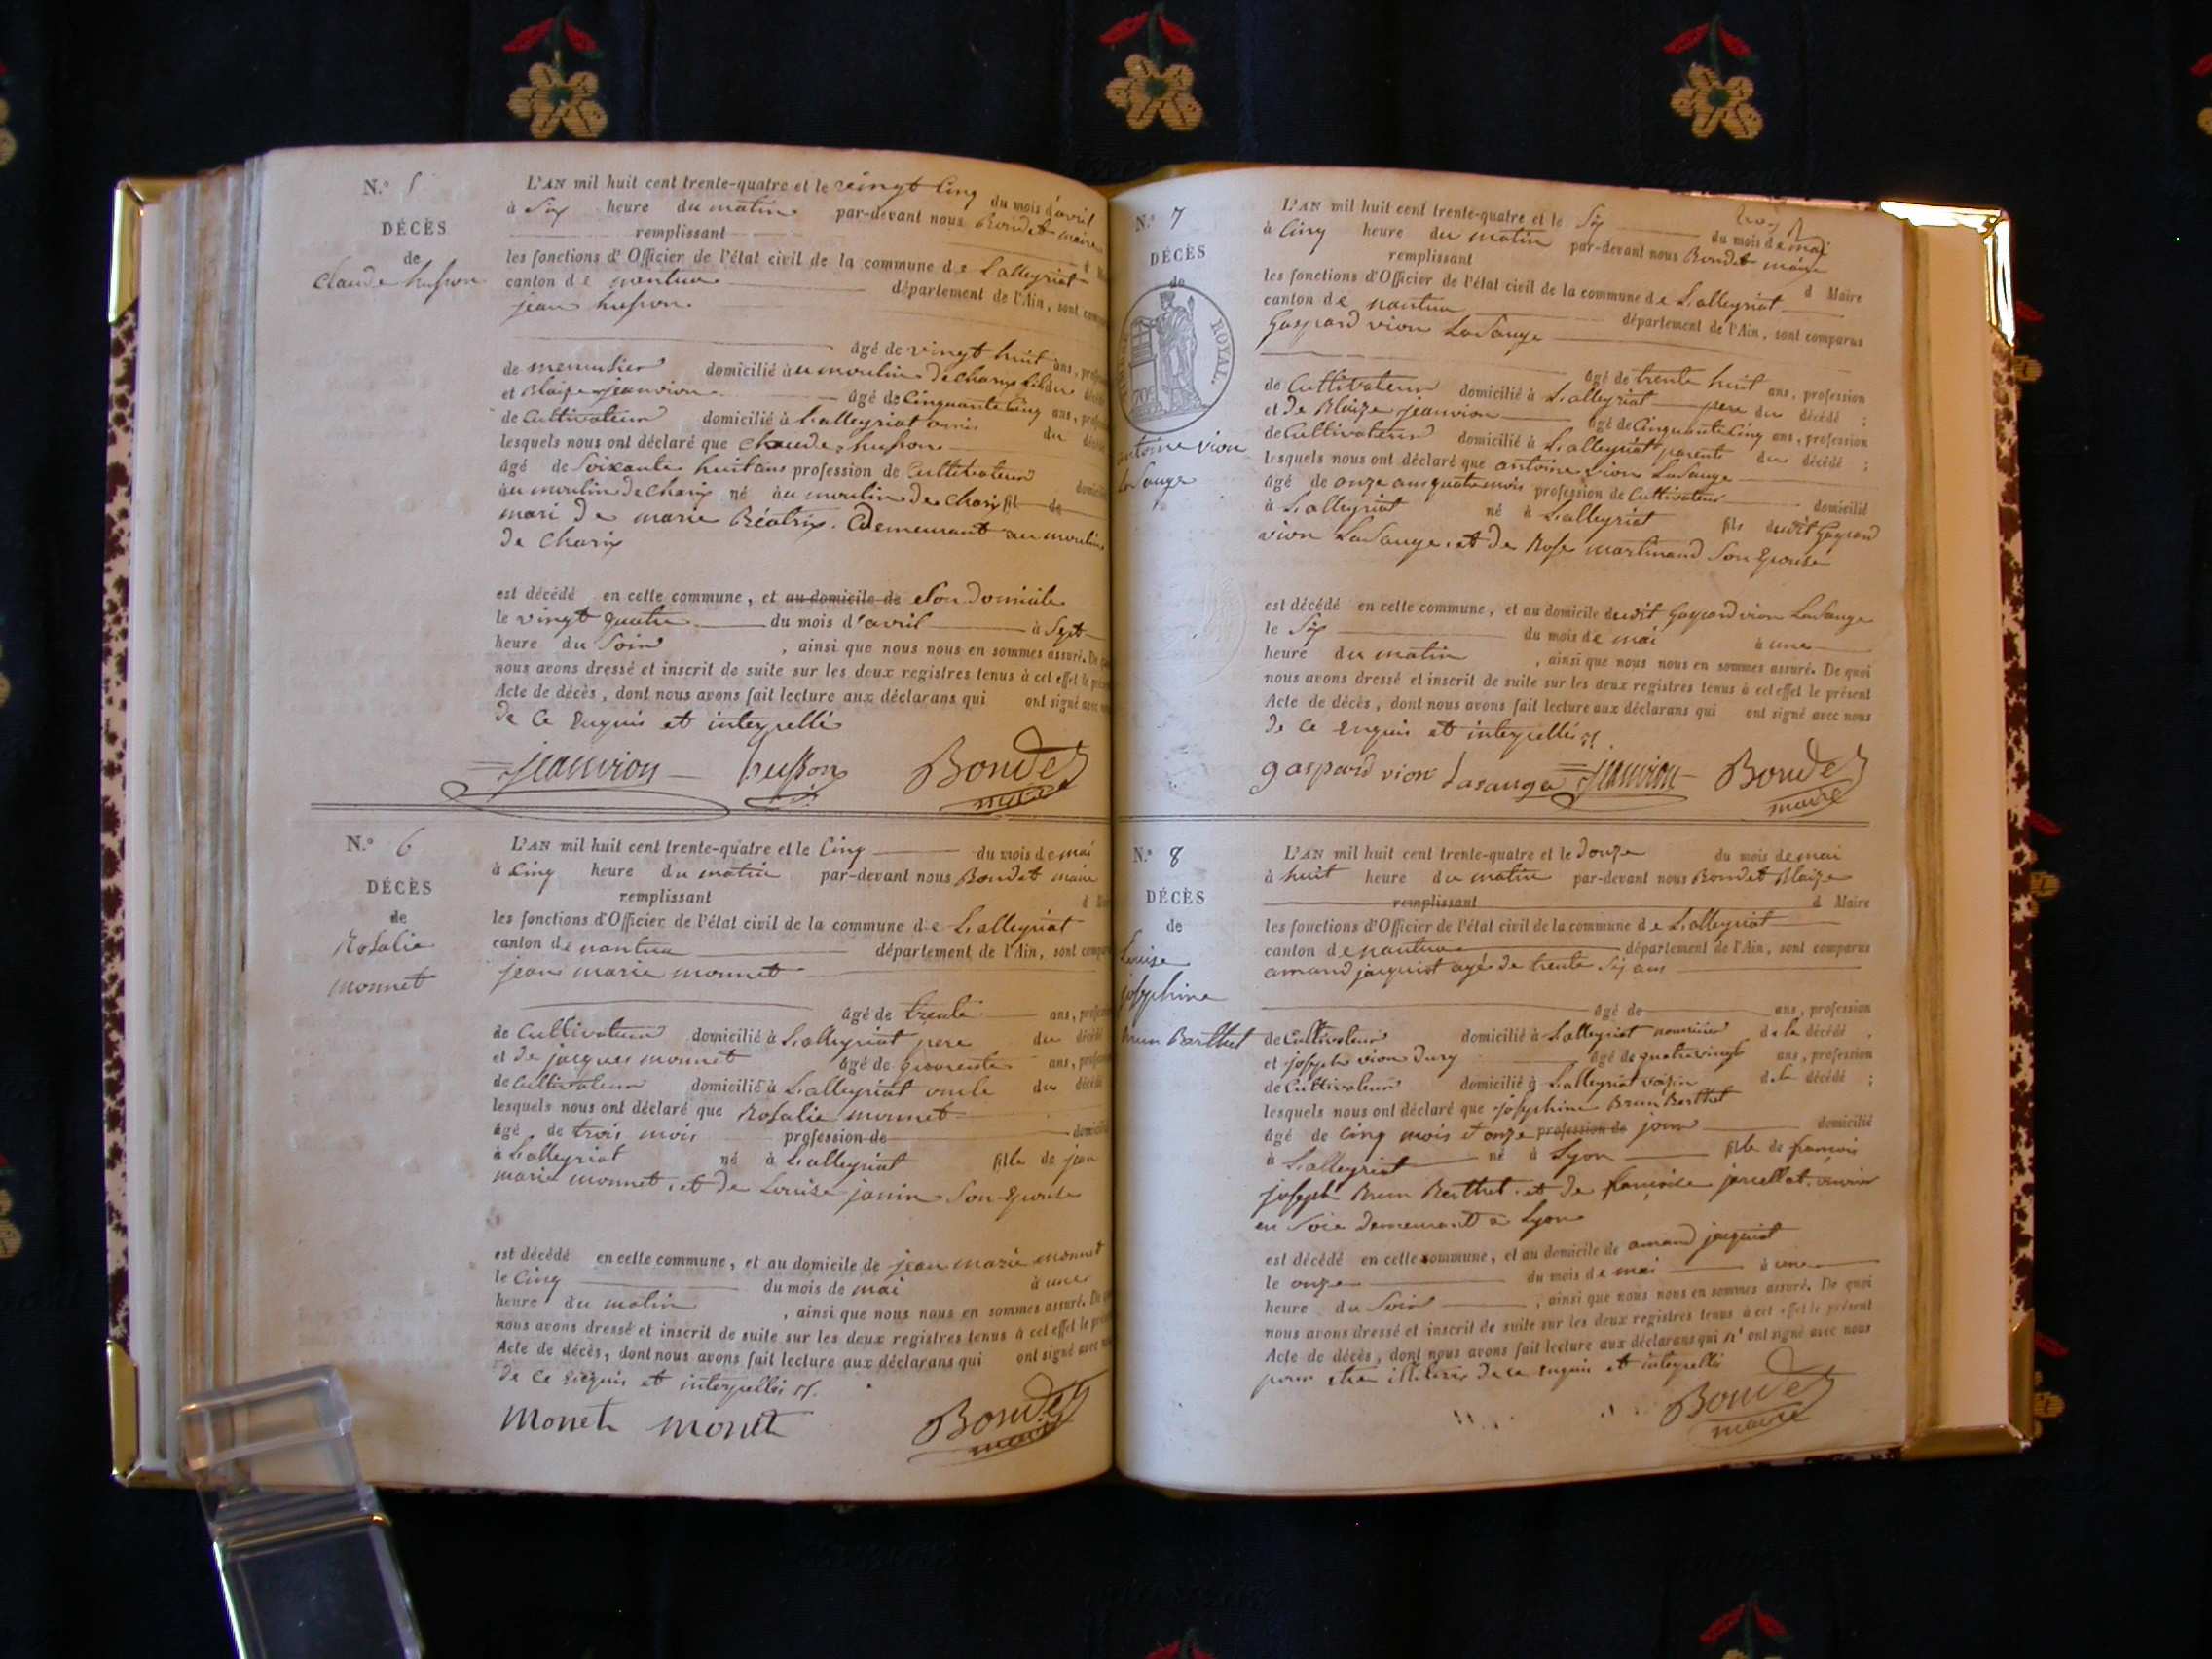 N.° 5
DÉCÈS
de
Claude husson
L'AN mil huit cent trente-quatre et le vingt Cinq du mois d'avril
à Six heure du matin par-devant nous Bondet maire
remplissant
les fonctions d'Officier de l'état civil de la commune de Lalleyriat
canton de nantua département de l'Ain, sont
jean husson
âgé de vingt huit ans,
de menuisier domicilié à au moulin de Charix
et Blaize jeanvion âgé de Cinquante Cinq ans,
de Cultivateur domicilié à Lalleyriat amis du
lesquels nous ont déclaré que Claude husson
âgé de Soixante huit ans profession de Cultivateur
au moulin de Charix né au moulin de Charix fil de
mari de marie Béatrix. Demeurant au moulin
de Charix
est décédé en cette commune, et au domicile de a Son Domicile
le vingt quatre du mois d'avril à Sept
heure du Soir, ainsi que nous nous en sommes assuré. De
nous avons dressé et inscrit de suite sur les deux registres tenus à cet effet le
Acte de décès, dont nous avons fait lecture aux déclarans qui ont signé avec
de Ce Enquis et interpellés
jeanvion husson Bondet
maire
N.° 6
DÉCÈS
de
Rosalie
monnet
L'AN mil huit cent trente-quatre et le Cinq du mois de mai
à Cinq heure du matin par-devant nous Bondet maire
remplissant
les fonctions d'Officier de l'état civil de la commune de Lalleyriat
canton de nantua département de l'Ain, sont
jean marie monnet
âgé de trente ans,
de Cultivateur domicilié à Lalleyriat pere du décédé
et de jacques monnet âgé de quarente ans,
de Cultivateur domicilié à Lalleyriat oncle du décédé
lesquels nous ont déclaré que Rosalie monnet
âgé de trois mois profession de
à Lalleyriat né à Lalleyriat fille de jean
marie monnet, et de Louise janin Son Epouse
est décédé en cette commune, et au domicile de jean marie monnet
le Cinq du mois de mai à une
heure du matin, ainsi que nous nous en sommes assuré. De
nous avons dressé et inscrit de suite sur les deux registres tenus à cet effet le
Acte de décès, dont nous avons fait lecture aux déclarans qui ont signé avec
de Ce Enquis et interpellés
Monet monet Bondet
maire
N.° 7
DÉCÈS
de
ROYAL.
antoine vion
La Sauge
L'AN mil huit cent trente-quatre et le Six du mois de mai
à Cinq heure du matin par-devant nous Bondet maire
remplissant d Maire
les fonctions d'Officier de l'état civil de la commune de Lalleyriat
canton de nantua département de l'Ain, sont comparus
Gaspard vion LaSauge
âgé de trente huit ans, profession
de Cultivateur domicilié à Lalleyriat pere du décédé ;
et de Blaize jeanvion âgé de Cinquante Cinq ans, profession
de Cultivateur domicilié à Lalleyriat parente du décédé ;
lesquels nous ont déclaré que antoine vion LaSauge
âgé de onze ans quatre mois profession de Cultivateur domicilié
à Lalleyriat né à Lalleyriat fils dudit Gaspard
vion LaSauge, et de Rose martinand Son Epouse
est décédé en cette commune, et au domicile dudit Gaspard vion LaSauge
le Six du mois de mai à une
heure du matin, ainsi que nous nous en sommes assuré. De quoi
nous avons dressé et inscrit de suite sur les deux registres tenus à cet effet le présent
Acte de décès, dont nous avons fait lecture aux déclarans qui ont signé avec nous
de Ce Enquis et interpellés
gaspard vion Lasauge jeanvion Bondet
maire
N.° 8
DÉCÈS
de
Louise
josephine
Brun Berthet
L'AN mil huit cent trente-quatre et le Douze du mois de mai
à huit heure du matin par-devant nous Bondet Blaize
remplissant d Maire
les fonctions d'Officier de l'état civil de la commune de Lalleyriat
canton de nantua département de l'Ain, sont comparus
amand jacquiot agé de trente Six ans
âgé de ans, profession
de Cultivateur domicilié à Lalleyriat nourricier de la décédé
et joseph vion Dury âgé de quatre vingt ans, profession
de Cultivateur domicilié à Lalleyriat voisin de la décédé ;
lesquels nous ont déclaré que josephine Brun Berthet
âgé de Cinq mois et onze profession de jour domicilié
à Lalleyriat né à Lyon fille de francois
joseph Brun Berthet, et de francoise
en Soie demeurant à Lyon
est décédé en cette commune, et au domicile de amand jacquiot
le onze du mois de mai à une
heure du Soir, ainsi que nous nous en sommes assuré. De quoi
nous avons dressé et inscrit de suite sur les deux registres tenus à cet effet le présent
Acte de décès, dont nous avons fait lecture aux déclarans qui n'ont signé avec nous
pour etre illiterés de ce enquis et interpellés
Bondet
maire